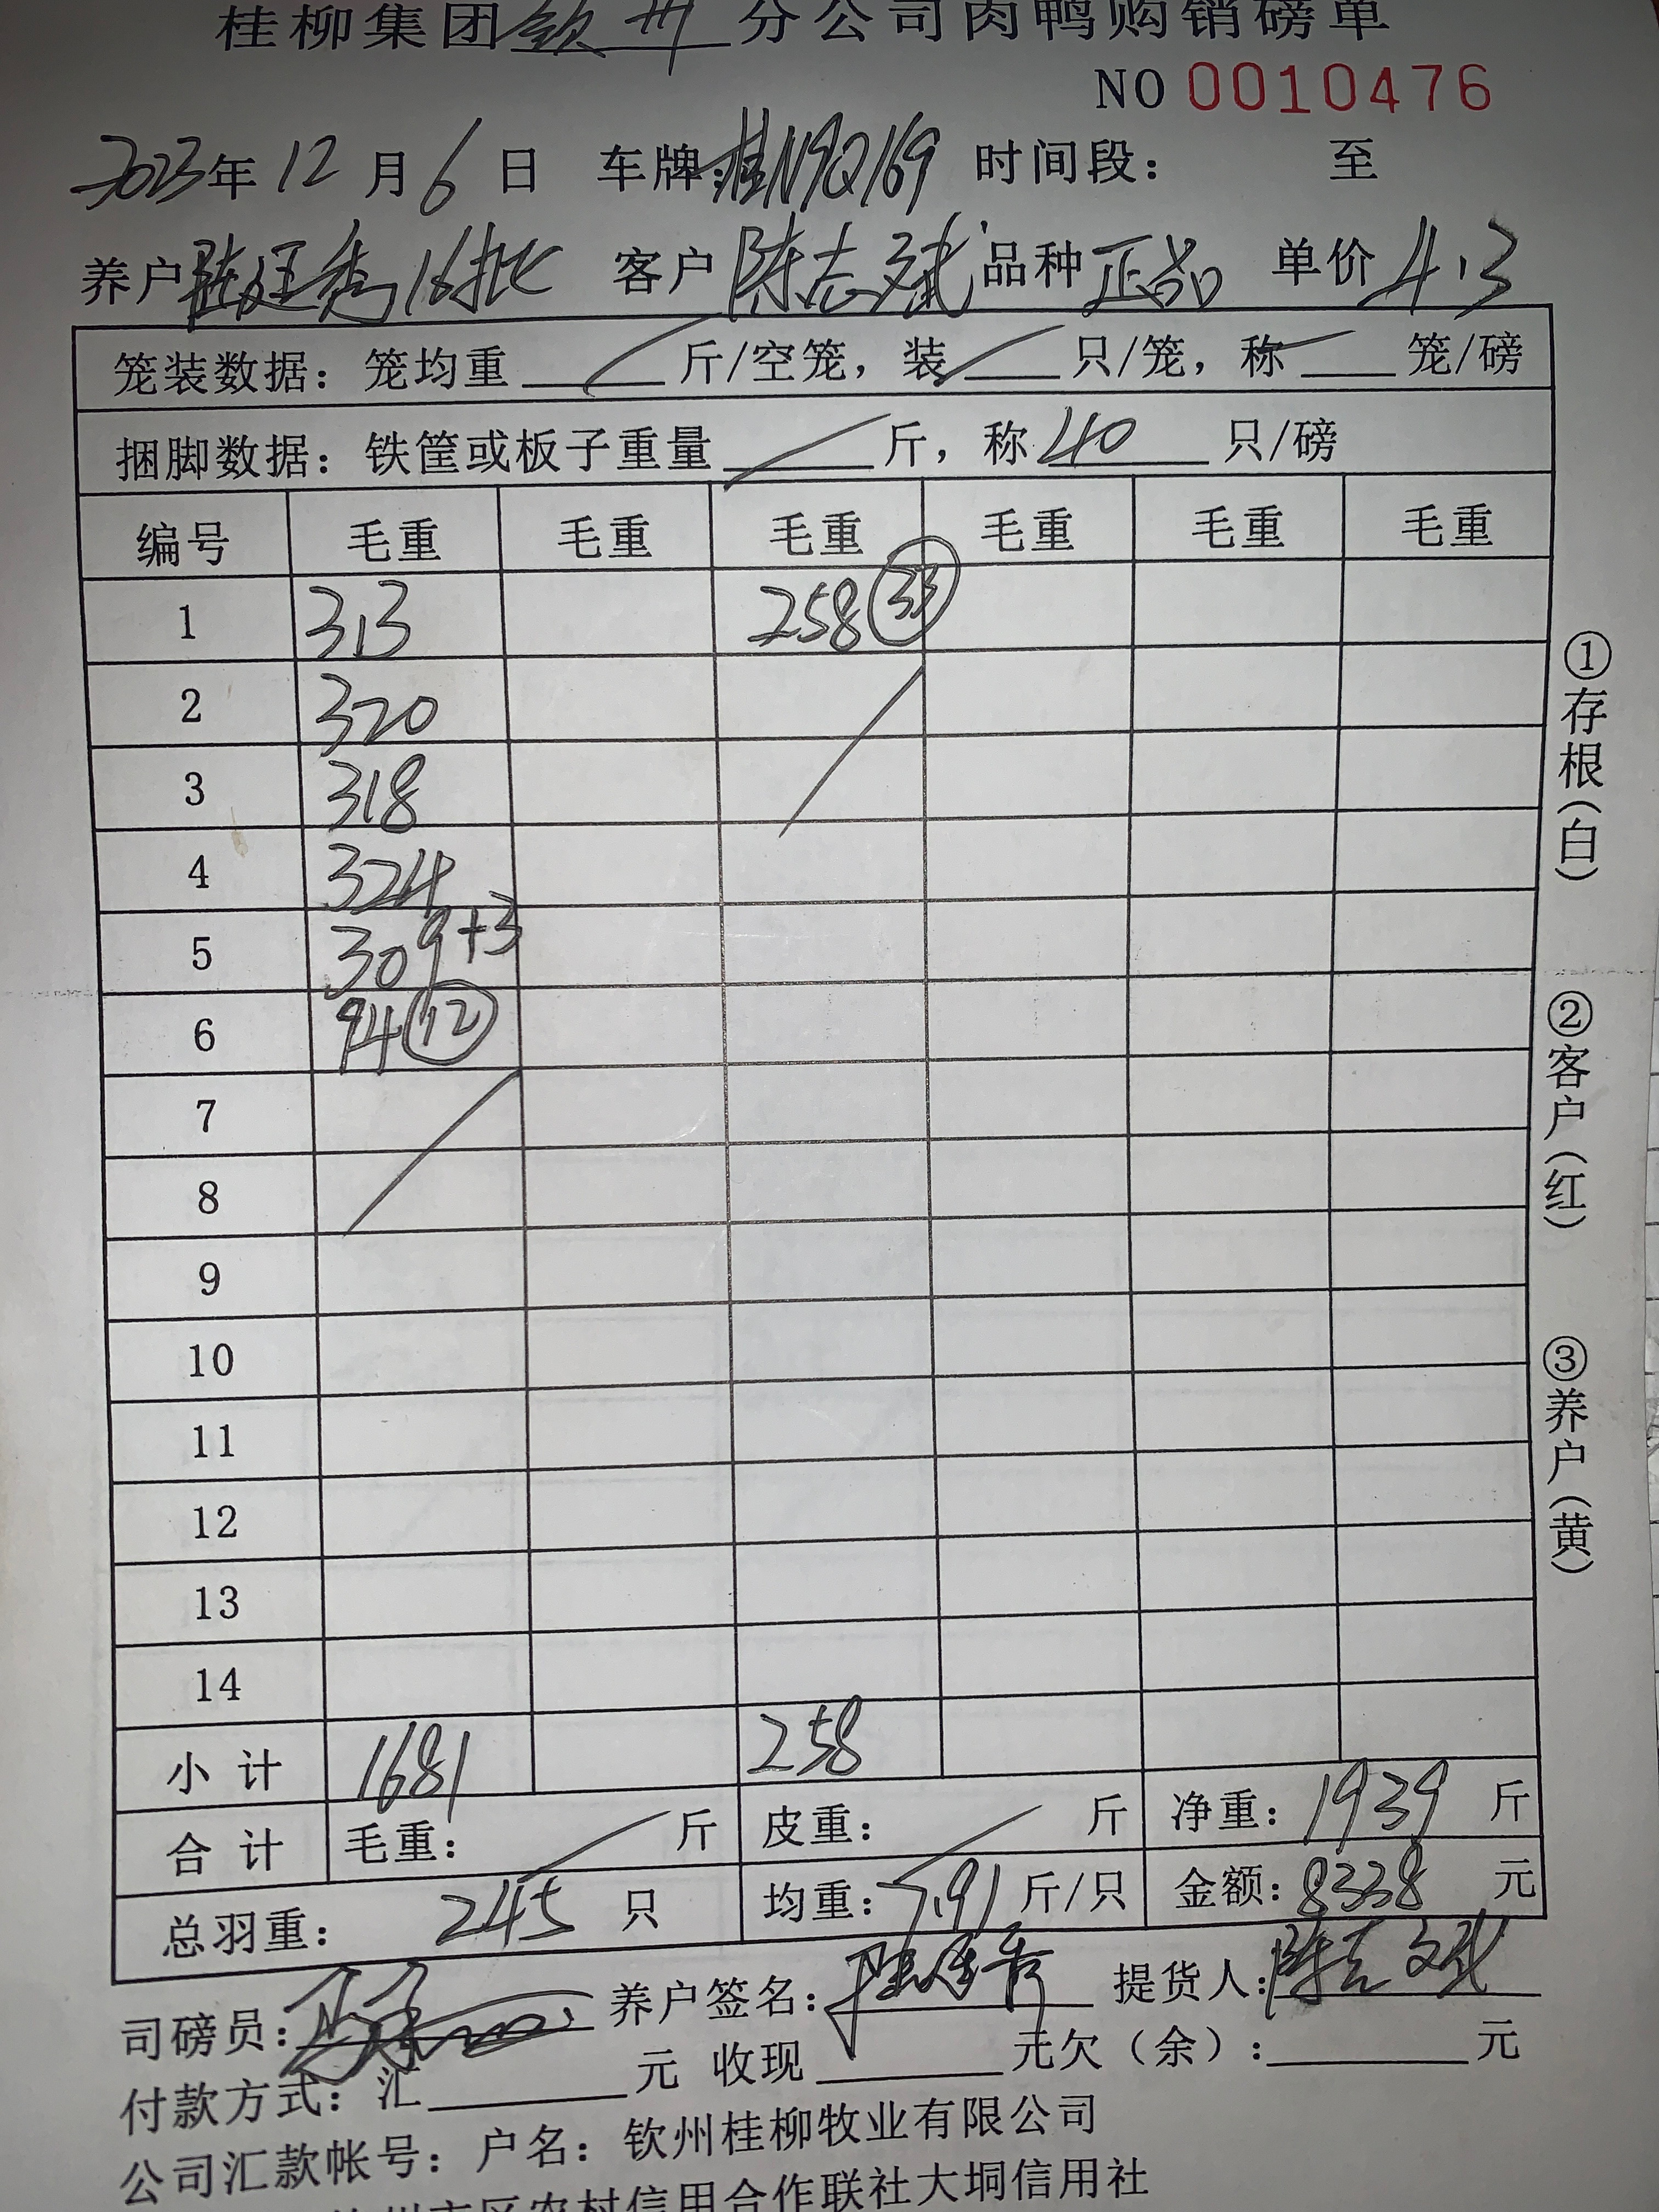 桂柳集团钦州分公司肉鸭购销磅单
NO 0010476
2023年12月6日 车牌:桂N9Q169 时间段: 至
养户 16批 客户陈志斌 品种正品 单价4.3
笼装数据: 笼均重 斤/空笼, 装 只/笼, 称 笼/磅
捆脚数据: 铁筐或板子重量 斤, 称40只/磅
编号 毛重 毛重 毛重 毛重 毛重 毛重
1 313 258 33
2 320
3 318
4 324
5 309+3
6 94 12
7
8
9
10
11
12
13
14
小计 1681 258
合计 毛重: 斤 皮重: 斤 净重: 1939 斤
总羽重: 245 只 均重: 7.91 斤/只 金额: 8338 元
司磅员: 养户签名: 提货人: 陈志斌
付款方式: 汇 元 收现 元欠(余): 元
公司汇款帐号: 户名: 钦州桂柳牧业有限公司
市区农村信用合作联社大垌信用社
①存根(白)
②客户(红)
③养户(黄)